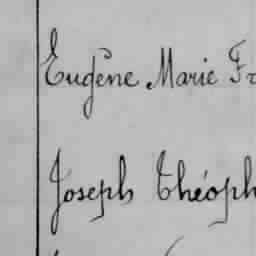 Eugène Marie Fr
Joseph Théoph